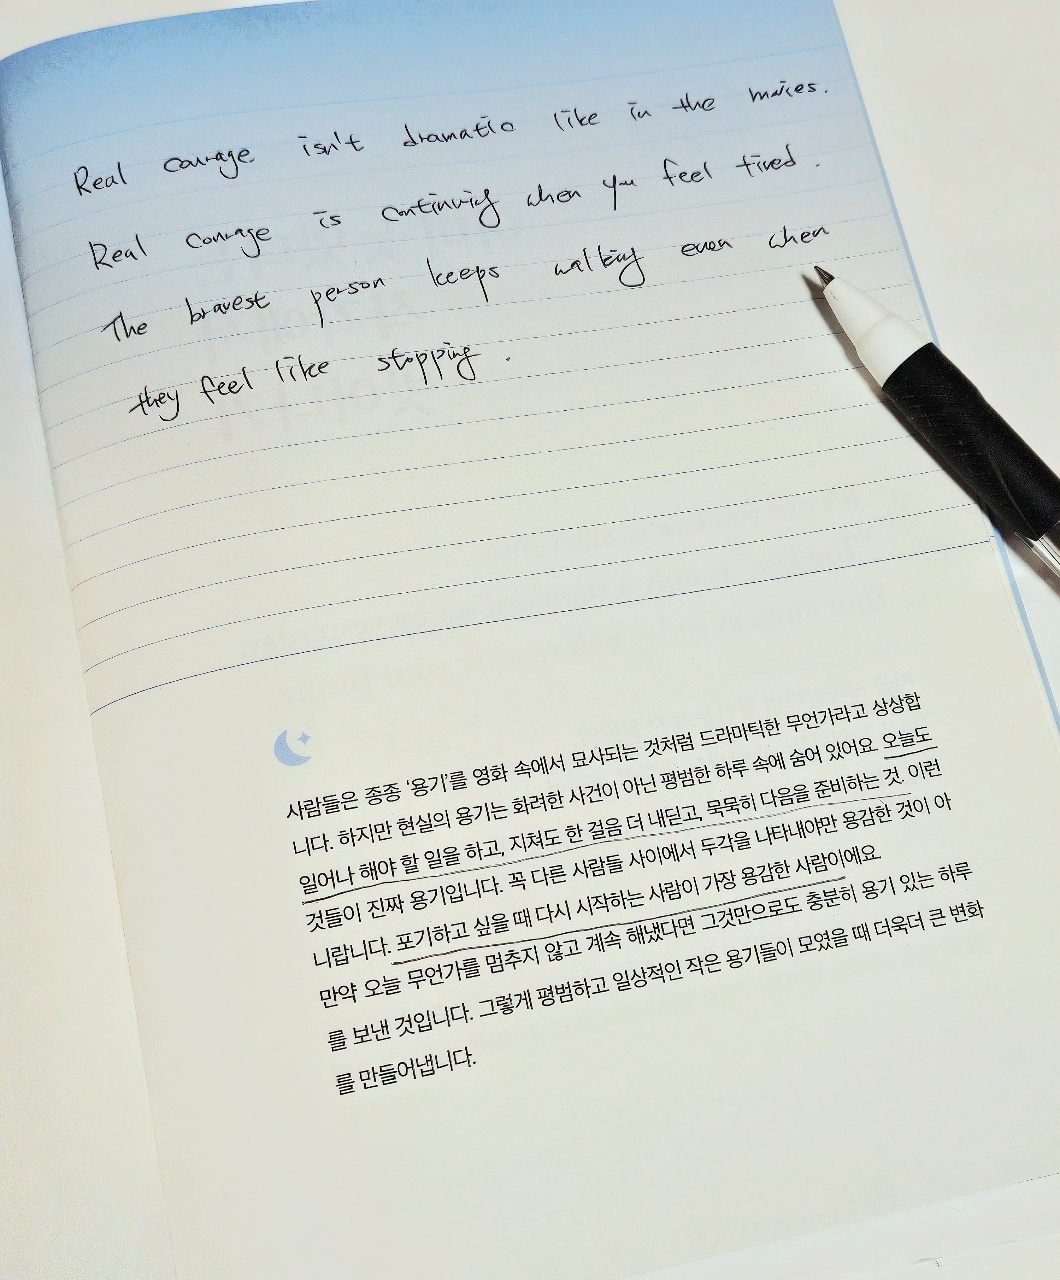 Real courage isn't dramatic like in the movies.
Real courage is continuing when you feel tired.
The bravest person keeps walking even when
they feel like stopping.
사람들은 종종 '용기'를 영화 속에서 묘사되는 것처럼 드라마틱한 무언가라고 상상합
니다. 하지만 현실의 용기는 화려한 사건이 아닌 평범한 하루 속에 숨어 있어요. 오늘도
일어나 해야 할 일을 하고, 지쳐도 한 걸음 더 내딛고, 묵묵히 다음을 준비하는 것. 이런
것들이 진짜 용기입니다. 꼭 다른 사람들 사이에서 두각을 나타내야만 용감한 것이 아
니랍니다. 포기하고 싶을 때 다시 시작하는 사람이 가장 용감한 사람이에요.
만약 오늘 무언가를 멈추지 않고 계속 해냈다면 그것만으로도 충분히 용기 있는 하루
를 보낸 것입니다. 그렇게 평범하고 일상적인 작은 용기들이 모였을 때 더욱더 큰 변화
를 만들어냅니다.